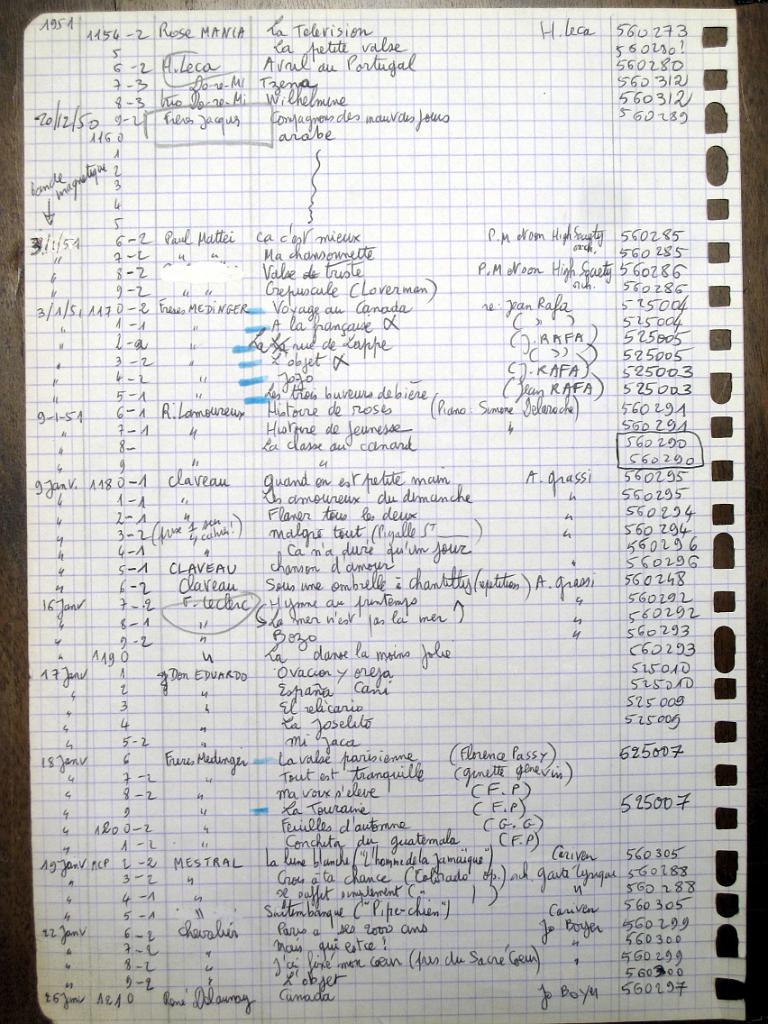 1951
1154-2 Rose MANIA La Television H. Leca 560273
5 La petite valse
6-2 H. Leca Avril au Portugal 560280
7-3 Do-re-Mi Tzena 560312
8-3 trio Do-re-Mi Wilhelmine 560312
20/12/50 9-2 Freres Jacques Compagnons des mauvais jours 560289
1160 arabe
1
2
bande magnetique 3
4
5
3/1/51 6-2 Paul Mattei ca c'est mieux P.M et son High Society orch. 560285
" 7-2 " " Ma chansonnette 560285
" 8-2 Valse triste P.M et son High Society orch. 560286
" 9-2 " " Crepuscule (Loverman) 560286
3/1/51 1170-2 Freres MEDINGER Voyage au Canada re: Jean Rafa 525004
" 1-1 " A la française α ( " " ) 525004
" 2-2 " La rue de Lappe (J. RAFA) 525005
" 3-2 " L'objet α ( " ) 525005
" 4-2 " Jojo (J. RAFA) 525003
" 5-1 " Les trois buveurs de bière (Jean RAFA) 525003
9-1-51 6-1 R. Lamoureux Histoire de roses (Piano: Simone Delaroche) 560291
" 7-1 " Histoire de Jeunesse " 560291
" 8- La classe au canard 560290
" 9 " " 560290
9 Janv. 1180-1 Claveau quand on est petite main A. grassi 560295
" 1-1 " Les amoureux du dimanche " 560295
" 2-1 " Flaner tous les deux " 560294
" 3-2 malgré tout (Pigalle ST ) " 560294
" 4-1 " Ca n'a duré qu'un jour " 560296
" 5-1 CLAVEAU chanson d'amour " 560296
" 6-2 Claveau Sous une ombrelle à chantilly (repetition) A. grassi 560248
16 Janv 7-2 F. Leclerc Hymne au printemps " 560292
" 8-1 " La mer n'est pas la mer " 560292
" 9-2 " Bozo " 560293
" 1190 " La danse la moins jolie 560293
17 Janv 1 Don EDUARDO Ovacion y oreja 525010
" 2 " España Cani 525010
" 3 " El relicario 525009
" 4 " La Joselito 525009
" 5-2 " Mi Jaca
18 Janv 6 Freres Medinger La valse parisienne (Florence Passy) 525007
" 7-2 " Tout est tranquille (ginette genevin)
" 8-2 " Ma voix s'eleve (F.P)
" 9 " La Touraine (F.P) 525007
" 1200-2 " Feuilles d'automne (G.G)
" 1-2 " Conchita du guatemala (F.P)
19 Janv MCP 2-2 MESTRAL la lune blanche ("L'homme de la Jamaïque") Cariven 560305
" 3-2 " Crois à ta chance (Colorado op.) orch. gaité lyrique 560288
" 4-1 " se suffit simplement ( " ) " 560288
" 5-1 " Saltimbanque ("Pipe-chien") Cariven 560305
22 Janv 6-2 Chevalier Paris a ses 2000 ans Jo Boyer 560299
" 7-2 " Mais qui est ce! " 560300
" 8-2 " J'ai fixé mon coeur (pres du Sacré Coeur) 560299
" 9-2 " L'objet 560300
25 Janv 1210 René Delaunay Canada Jo Boyer 560297